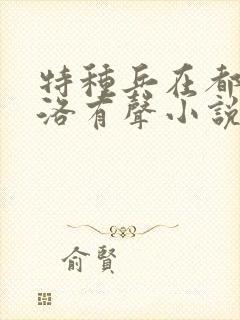 特種兵在都
洛有聲小説
俞賢